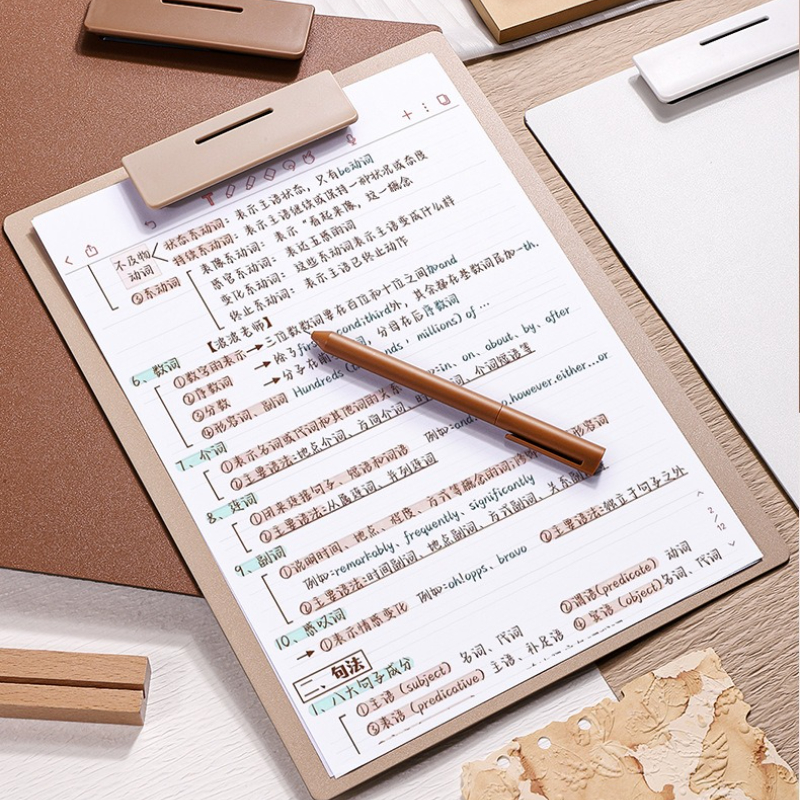 状态系动词：表示主语状态，又有be动词
持续系动词：表示主语继续或保持一种状况或态度
表像系动词：表示“看起来像”这一概念
感官系动词：表达五感的词
变化系动词：这些系动词表示主语变成什么样
终止系动词：表示主语已终止动作
不及物
动词
③系动词
【波波老师】
6、数词
①数字的表示→三位数数词要在百位和十位之间加and
②序数词→除了first,second,third外，其余都在基数词后加-th.
③分数→分子在前
分母在后序数词
④形容词、副词 Hundreds
ands, millions) of …
7、介词
①表示名词或代词和其他词的关系
in, on, about, by, after
②主要语法:地点介词、方向介词、时
词、介词短语等
8、连词
①用来连接句子、短语和词语
例如:and
however.either...or
②主要语法:从属连词、并列连词
9、副词
①说明时间、地点、程度、方式等概念的词;修饰
形容词
例如:remarkably, frequently, significantly
②主要语法:时间副词、地点副词、方式副词、关系副词
10、感叹词
→①表示情感变化 例如:oh!opps, bravo
②主要语法:独立于句子之外
二、句法
1、八大句子成分
①主语 (subject) 名词、代词
②谓语(predicate) 动词
③表语 (predicative) 主语、补足语
④宾语 (object)名词、代词
2/12